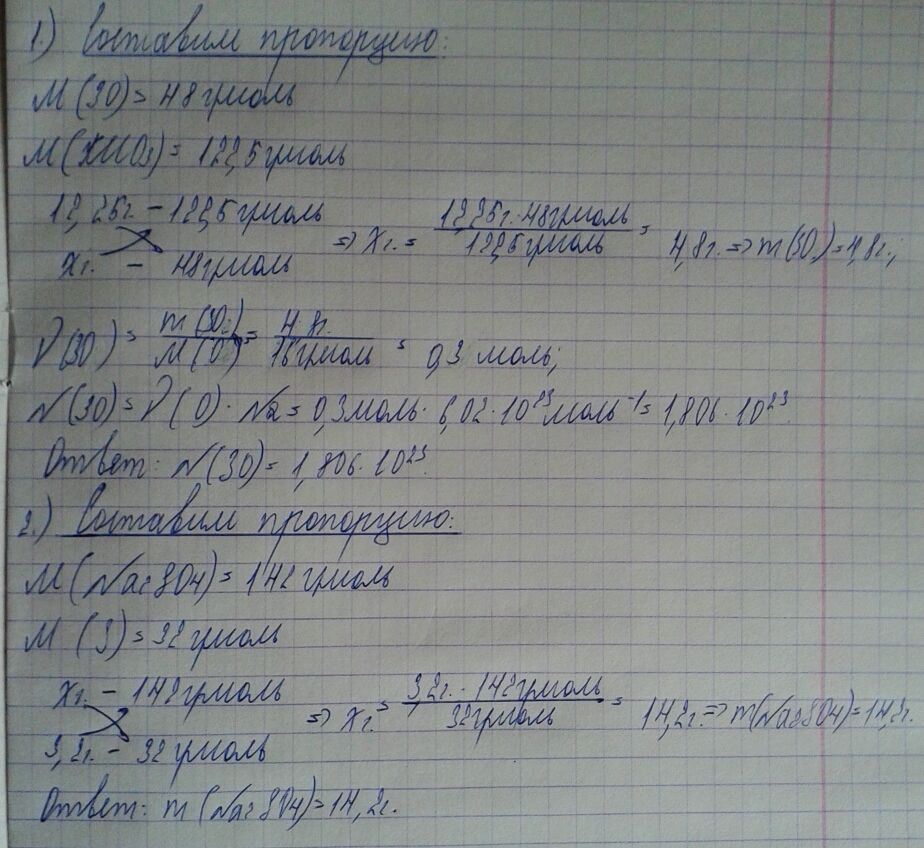 1.) Составим пропорцию:
M(3O)= 48 г/моль
M(KClO3)= 122,5 г/моль
12,25г. – 122,5 г/моль
xг. – 48 г/моль
=> xг. = 12,25г. · 48 г/моль / 122,5 г/моль = 4,8г. => m(3O)=4,8г.;
ν(3O) = m(3O) / M(O) = 4,8г. / 16 г/моль = 0,3 моль;
N(3O)= ν(O) · Na = 0,3 моль · 6,02 · 10²³ моль⁻¹ = 1,806 · 10²³.
Ответ: N(3O)= 1,806 · 10²³.
2.) Составим пропорцию:
M(Na2SO4)= 142 г/моль
M(S)= 32 г/моль
xг. – 142 г/моль
3,2г. – 32 г/моль
=> xг. = 3,2г. · 142 г/моль / 32 г/моль = 14,2г. => m(Na2SO4)=14,2г.
Ответ: m(Na2SO4)=14,2г.